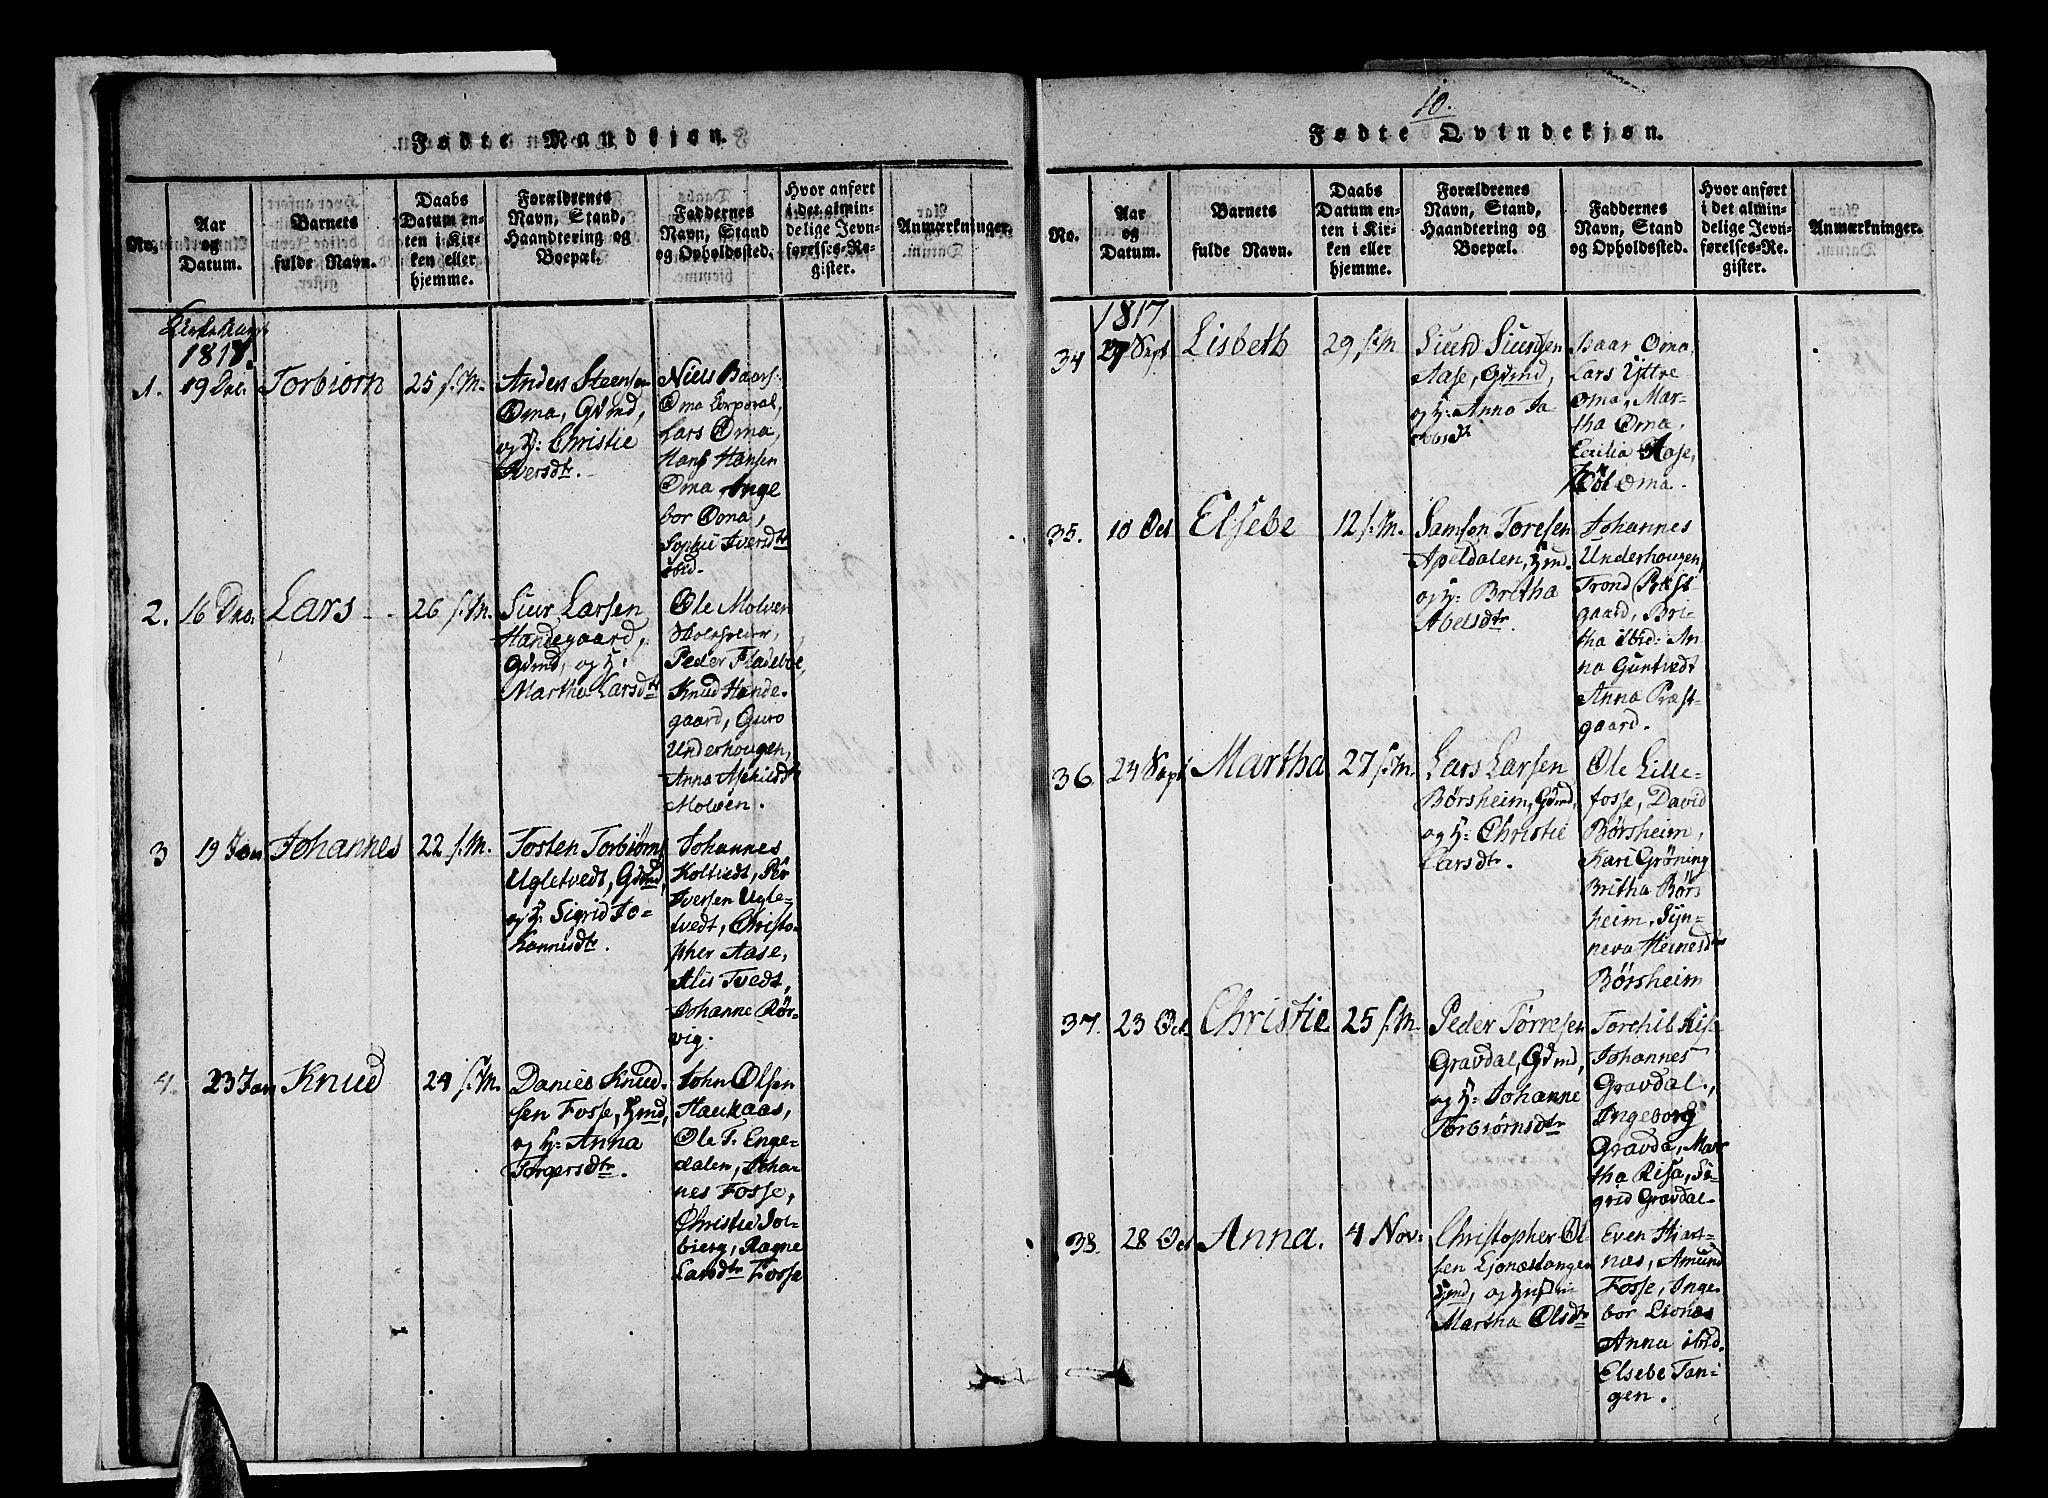 Fødte Mandkjøn.
No.
Aar
og
Datum.
Barnets
fulde Navn.
Daabs
Datum en-
ten i Kir-
ken eller
hjemme.
Forældrenes
Navn, Stand,
Haandtering og
Boepæl.
Faddernes
Navn, Stand
og Opholdssted.
Hvor anført
i det almin-
delige Jevn-
førelses-Re-
gister.
Anmærkninger.
1818.
1.
19 Dec.
Torbiorn
25 s. M.
Anders Steensen
Oma, Gdmd,
og H: Christie
Iversdtr.
Niels Baars-
Oma Corporal,
Lars Oma,
Hans Hansen
Oma, Inge
bor Oma,
Sophi Iversdtr
ibid.
2.
16 Dec.
Lars
26 s. M.
Siur Larsen
Handegaard,
Gdmd, og H:
Martha Larsdtr
Ole Molven
Peder Fladeboe,
Knud Hande-
gaard, Guro
Underhougen,
Anna Aschildtr
Molven.
3
19 Jan
Johannes
22 s. M.
Tosten Torbiørns
Ugletvedt, Gdmd,
og H: Sigrid Jo-
hannisdtr.
Johannes
Koltvedt, Per
Iversen Ugle-
tvedt, Christo-
pher Aase,
Alis Tvedt,
Johanne Rør-
vig.
4.
23 Jan
Knud
24 s. M.
Daniel Knud-
sen Fosse, Hmd,
og H: Anna
Torgersdtr.
John Olsen
Haukaas,
Ole T. Enge-
dalen, Johan-
nes Fosse,
Christie Sol-
bierg, Ragne
Larsdtr Fosse
10.
Fødte Qvindekjøn.
No.
Aar
og
Datum.
Barnets
fulde Navn.
Daabs
Datum en-
ten i Kir-
ken eller
hjemme.
Forældrenes
Navn, Stand,
Haandtering og
Boepæl.
Faddernes
Navn, Stand
og Opholdssted.
Hvor anført
i det almin-
delige Jevn-
førelses-Re-
gister.
Anmærkninger.
1817
34
27 Sept
Lisbeth
29 s. M
Siurd Siurdsen
Aase, Gdmd,
og H: Anna Ja-
cobsdtr
Baar Oma,
Lars Yttre
Oma, Mar-
tha Oma,
Cecilia Aase,
Oma.
35.
10 Oct
Elsebe
12 s. M.
Samson Toresen
Apeldalen, Hmd.
og H: Britha
Abelsdtr.
Johannes
Underhougen,
Trond Præst-
gaard, Bri-
tha ibid: An-
na Guntvedt
Anna Præst-
gaard.
36
24 Sept.
Martha
27 s. M.
Lars Larsen
Børsheim, Gdmd,
og H: Christie
Larsdtr.
Ole Lille-
fosse, David
Børsheim,
Kari Grøning
Britha Børs
heim, Syn-
neva Heinesdtr
Børsheim
37.
23 Oct
Christie
25 s. M.
Peder Tørresen
Gravdal, Gdmd,
og H: Johanne
Torbiørnsdtr
Torchil Risa
Johannes
Gravdal,
Ingeborg
Gravda, Mar
tha Risa, Si-
grid Gravdal.
38.
28 Oct
Anna.
4 Nov:
Christopher Ol-
sen Ljonestangen
Hmd, og Hustru
Martha Olsdtr
Even Hjart-
nes, Amund
Fosse, Inge-
bor Lionæs
Anna ibid.
Elsebe Tan-
gen.